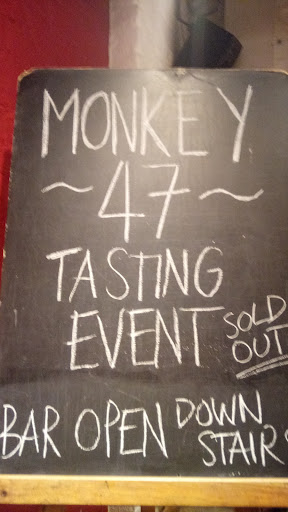 MONKEY
~47~
TASTING
EVENT SOLD OUT
BAR OPEN DOWN STAIRS